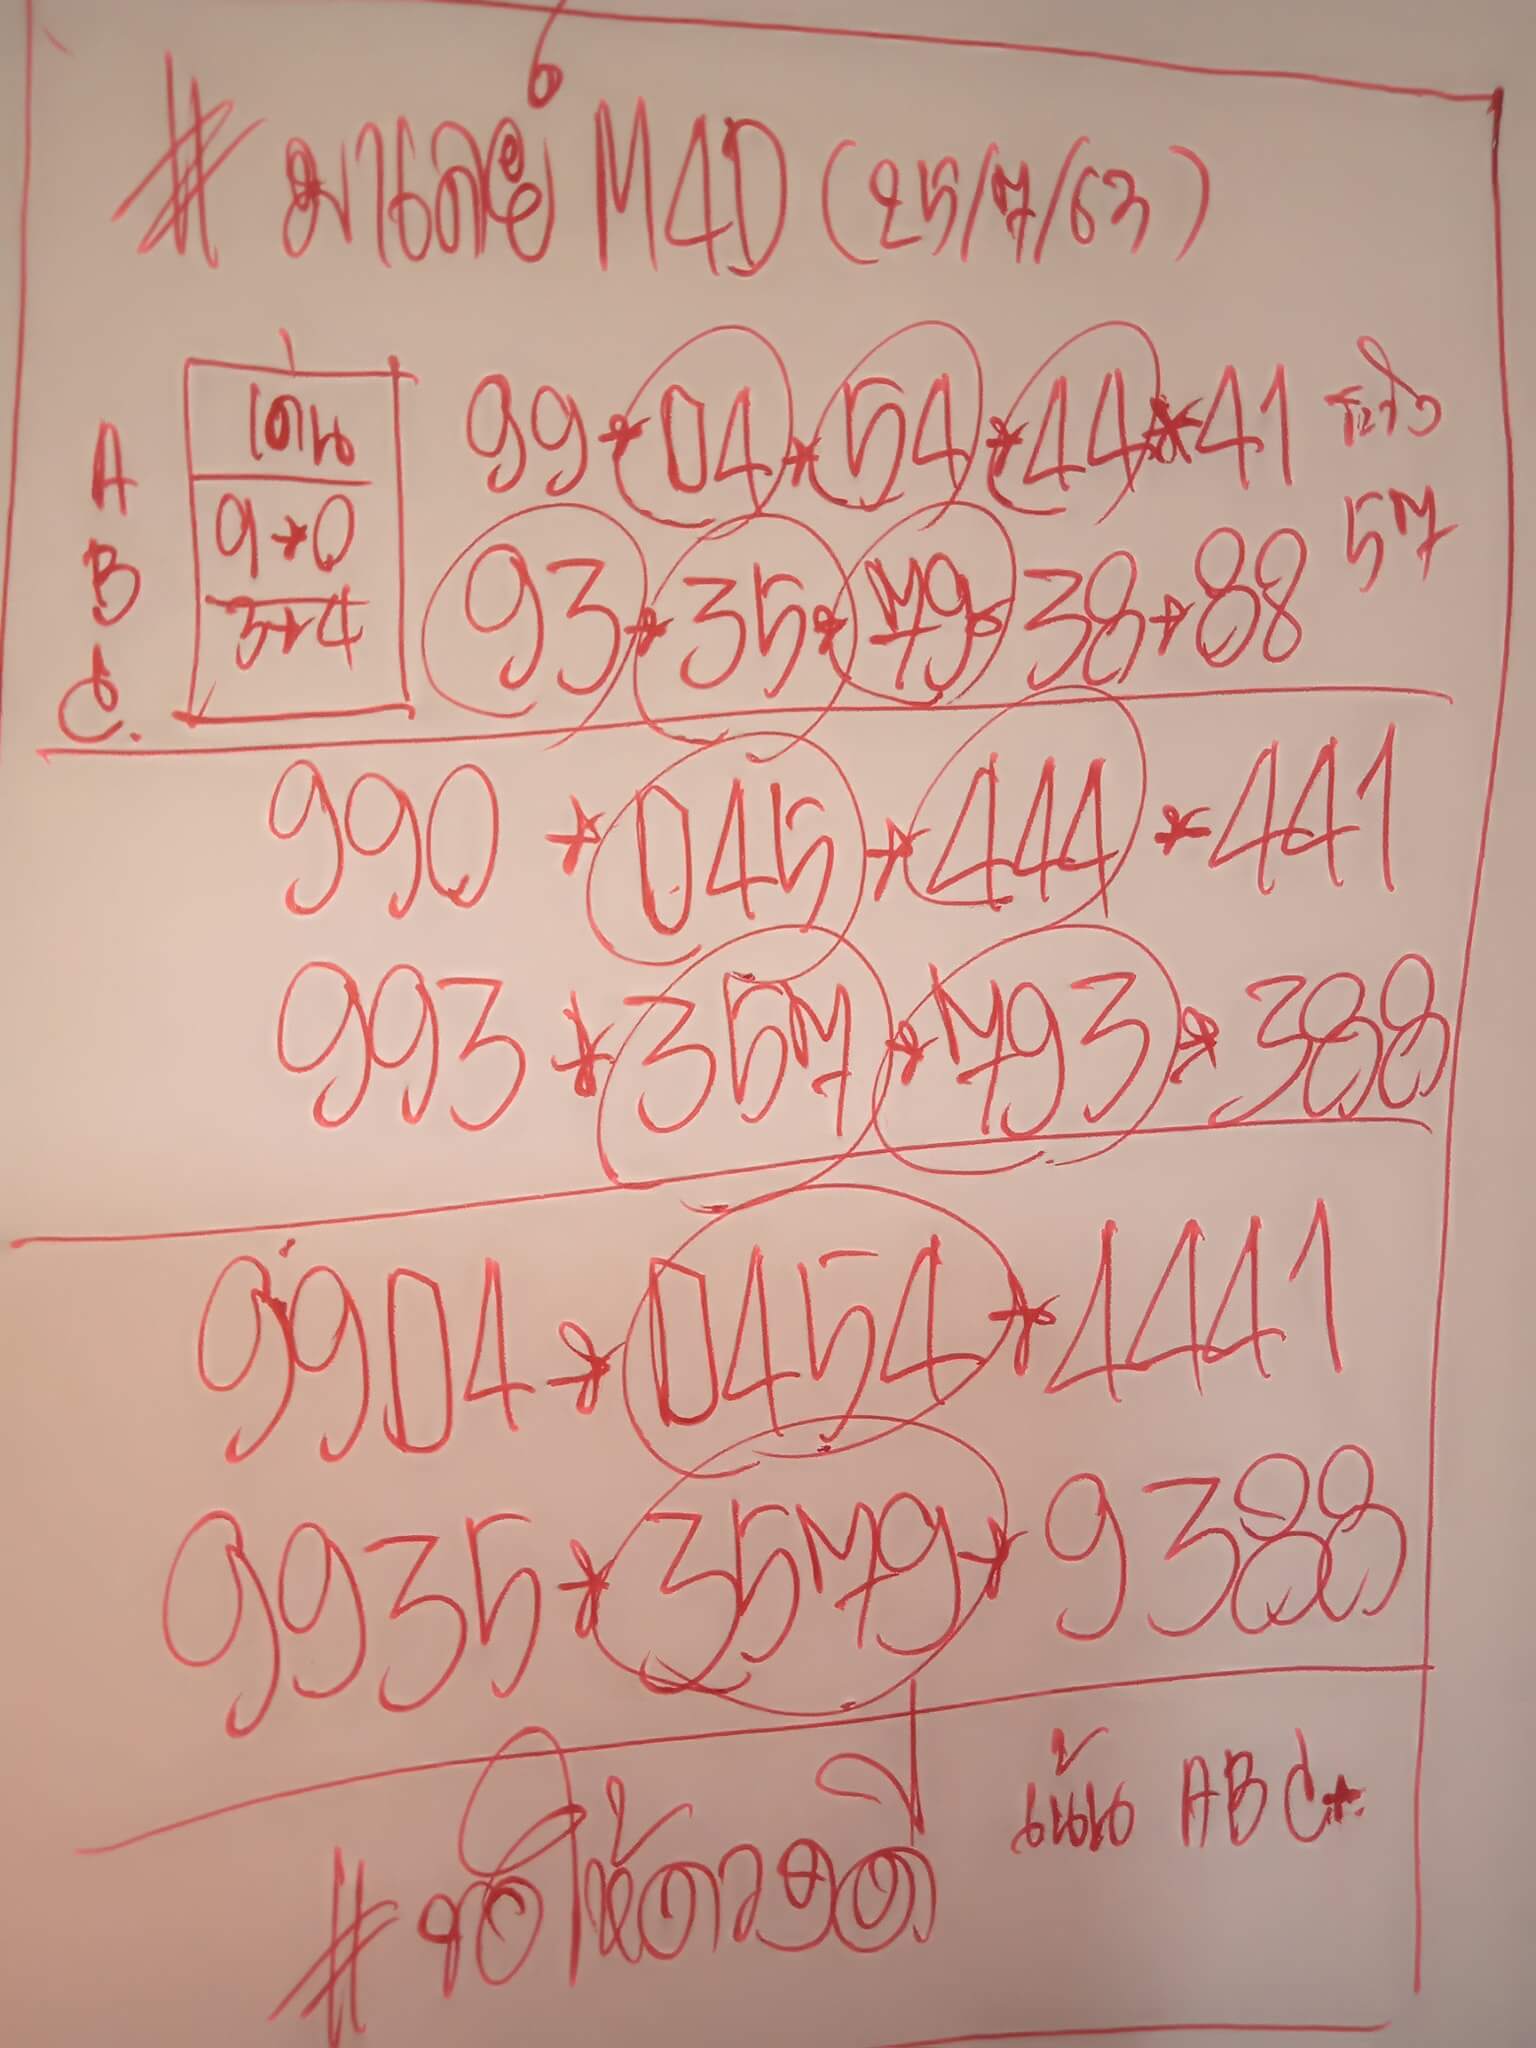 # มาเลย์ M4D (25/7/63)
A
B
C.
เด่น
9*0
3*4
99*04*54*44*41
93*35*79*38*88
ระวัง
57
990 * 045 * 444 * 441
993 * 357 * 793 * 388
9904 * 0454 * 4441
9935 * 3579 * 9388
#ขอให้โชคดี
เน้น ABC*